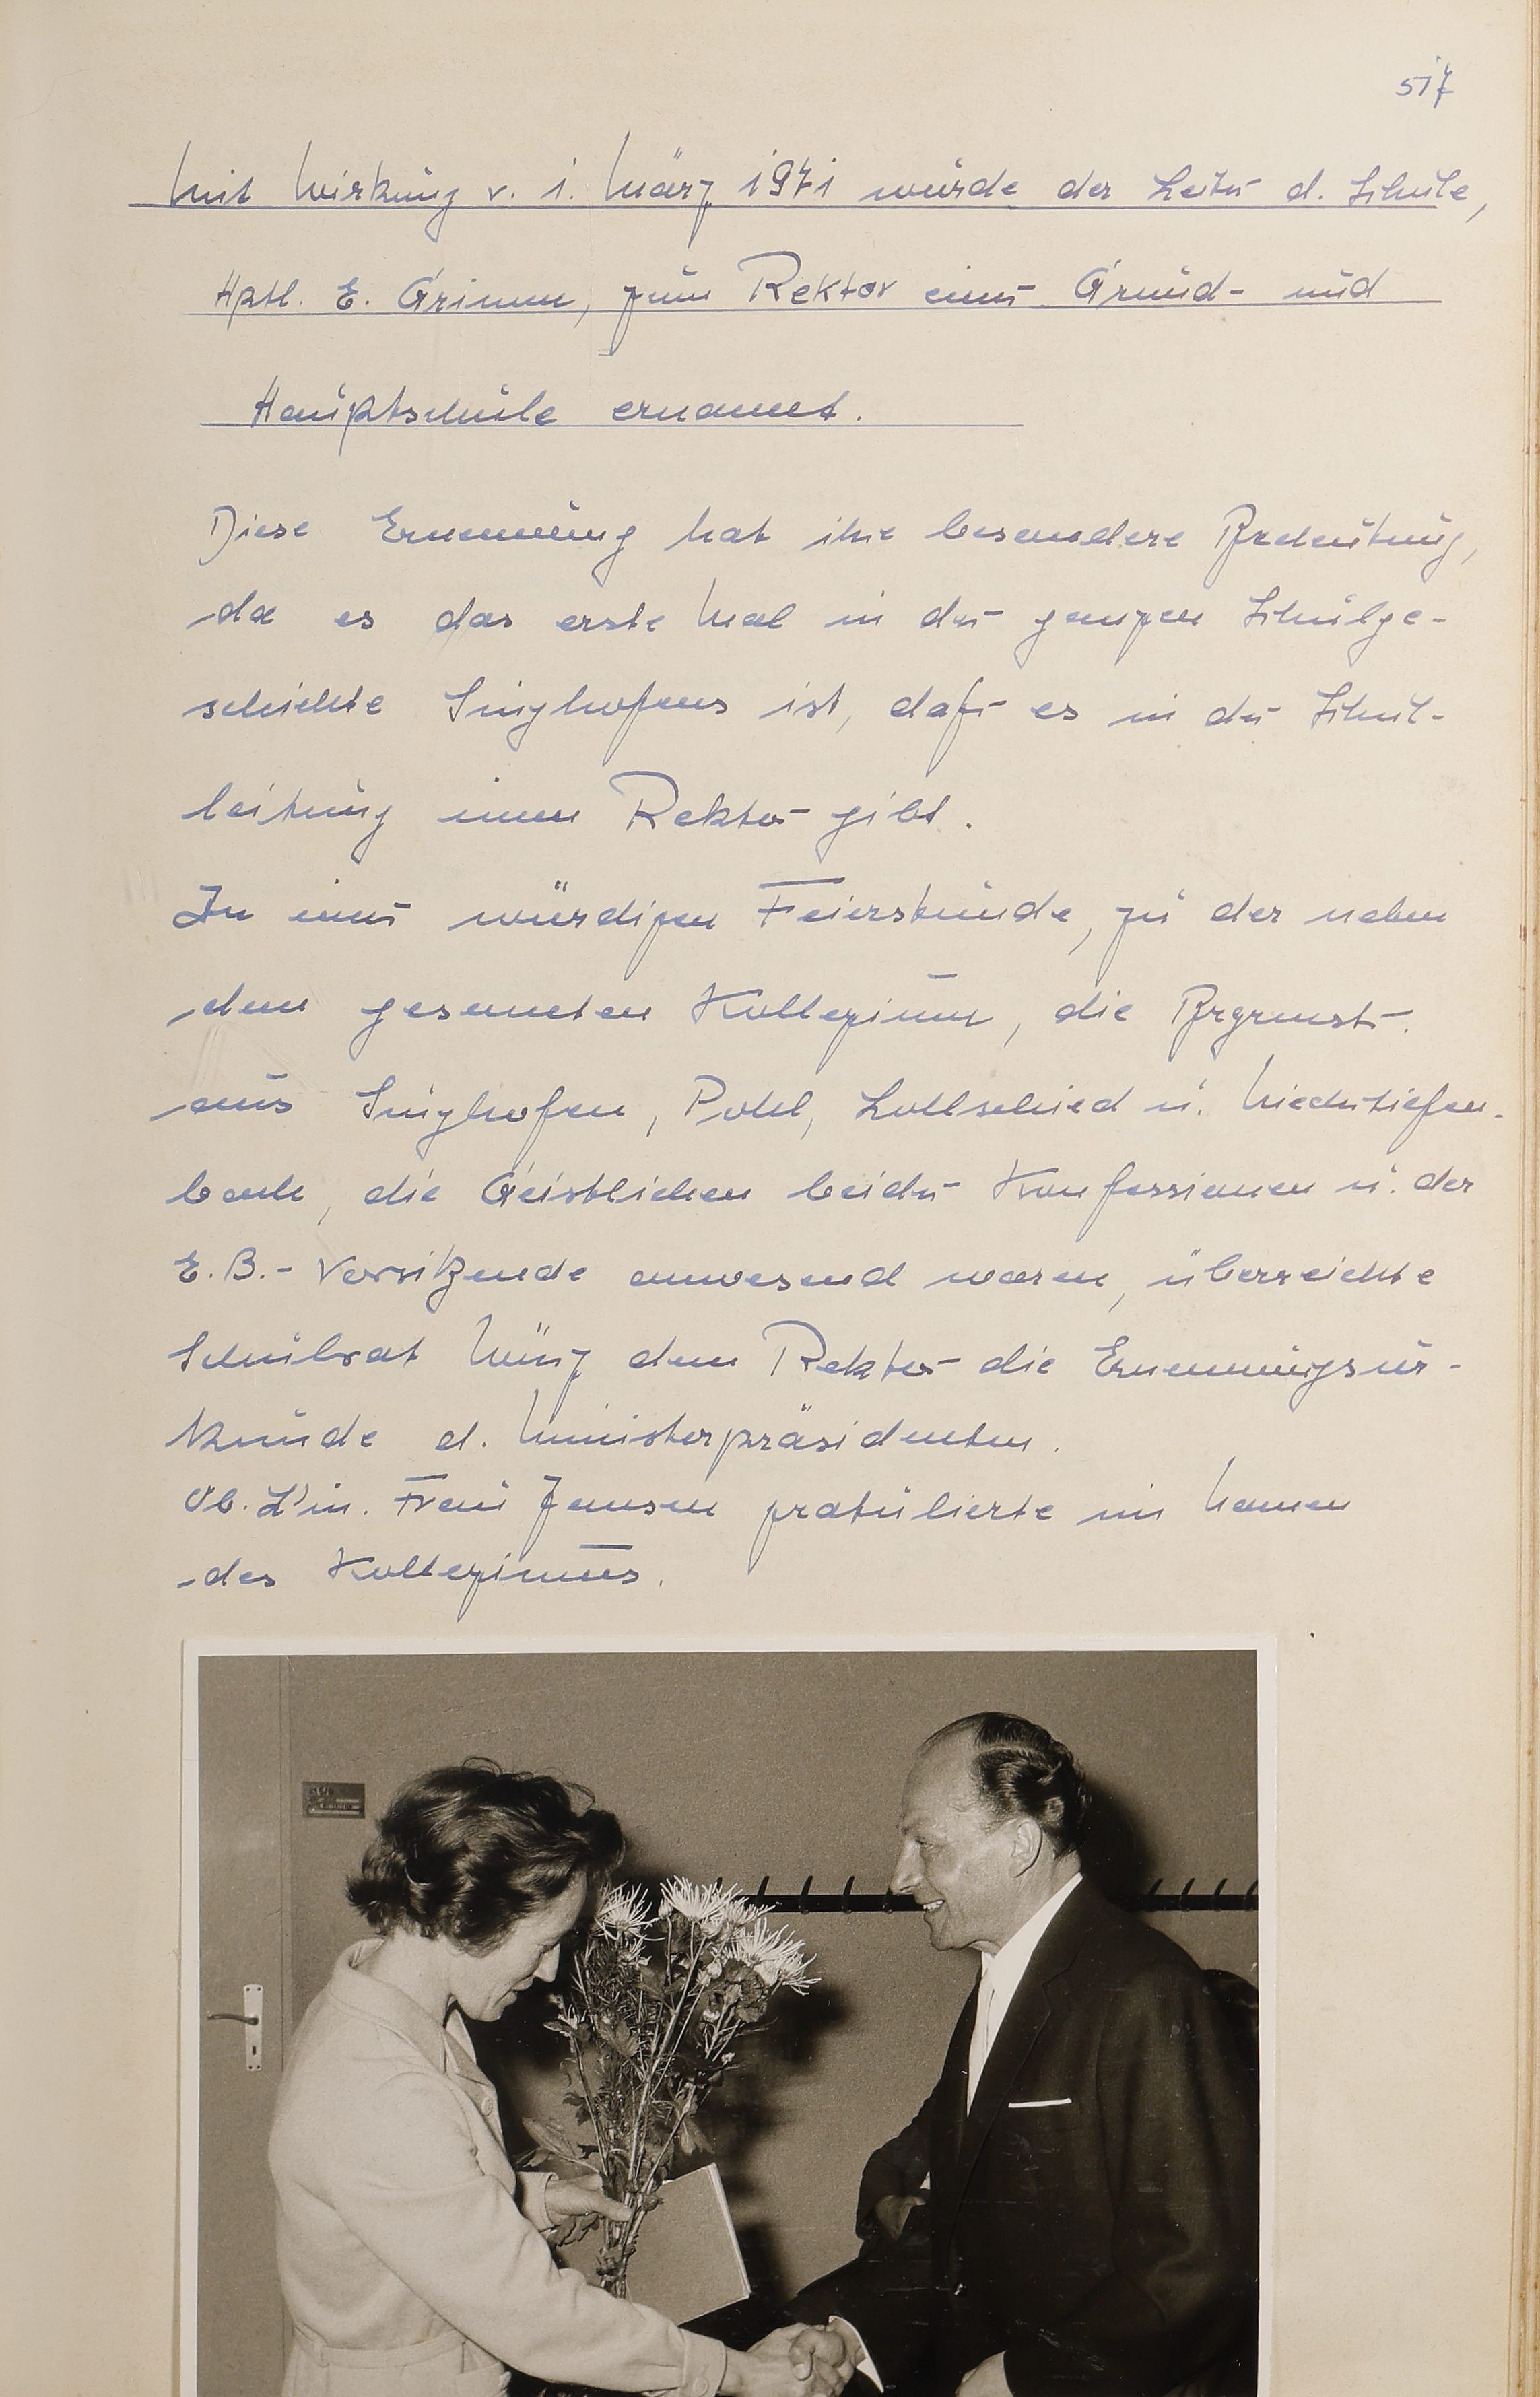 517
Mit Wirkung v. 1. März 1971 wurde der Leiter d. Schule,
Hptl. E. Grimm, zum Rektor einer Grund- und
Hauptschule ernannt.
Diese Ernennung hat ihre besondere Bedeutung,
da es das erste Mal in der ganzen Schulge-
schichte Singhofens ist, daß es in der Schul-
leitung einen Rektor gibt.
In einer würdigen Feierstunde, zu der neben
dem gesamten Kollegium, die Brgrmstr.
aus Singhofen, Pohl, Lollschied u. Niedertiefen-
bach, die Geistlichen beider Konfessionen u. der
E.B.-Vorsitzende anwesend waren, überreichte
Schulrat Münz dem Rektor die Ernennungsur-
kunde d. Ministerpräsidenten.
Ob. L'in. Frau Jansen gratulierte im Namen
des Kollegiums.